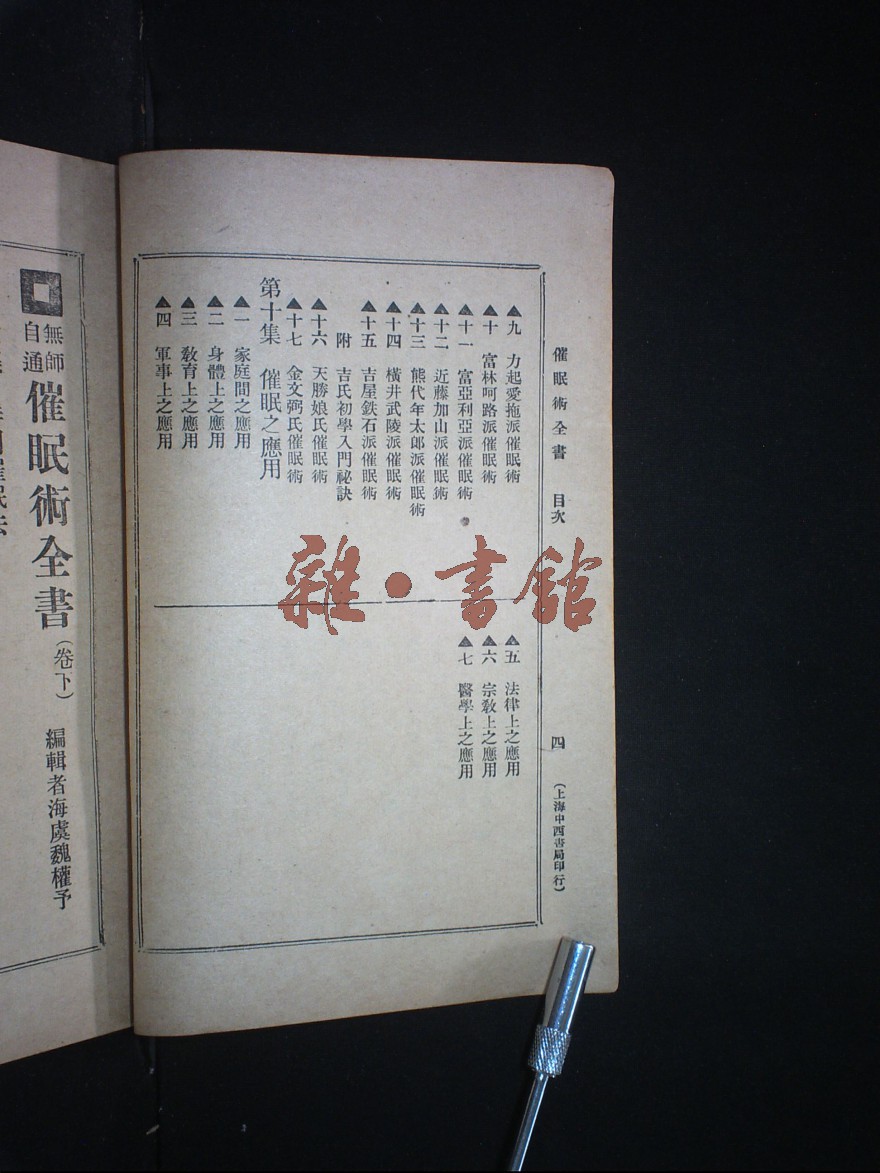 催眠術全書　目次　四　(上海中西書局印行)
▲九　力起愛拖派催眠術
▲十　富林呵路派催眠術
▲十一　富亞利亞派催眠術
▲十二　近藤加山派催眠術
▲十三　熊代年太郎派催眠術
▲十四　橫井武陵派催眠術
▲十五　吉屋鉄石派催眠術
附　吉氏初學入門祕訣
▲十六　天勝娘氏催眠術
▲十七　金文弼氏催眠術
第十集　催眠之應用
▲一　家庭間之應用
▲二　身體上之應用
▲三　敎育上之應用
▲四　軍事上之應用
▲五　法律上之應用
▲六　宗敎上之應用
▲七　醫學上之應用
雜·書館
無師自通　催眠術全書(卷下)　編輯者海虞魏權予